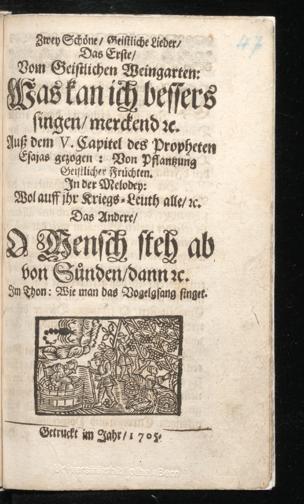 47
Zwey Schöne/ Geistliche Lieder/
Das Erste/
Vom Geistlichen Weingarten:
Was kan ich bessers
singen/ merckend ꝛc.
Auß dem V. Capitel des Propheten
Esajas gezogen: Von Pflantzung
Geistlicher Früchten.
In der Melodey:
Wol auff ihr Kriegs-Leuth alle/ ꝛc.
Das Andere/
O Mensch steh ab
von Sünden/ dann ꝛc.
Im Thon: Wie man das Vogelgsang singet.
Getruckt im Jahr/ 1705.